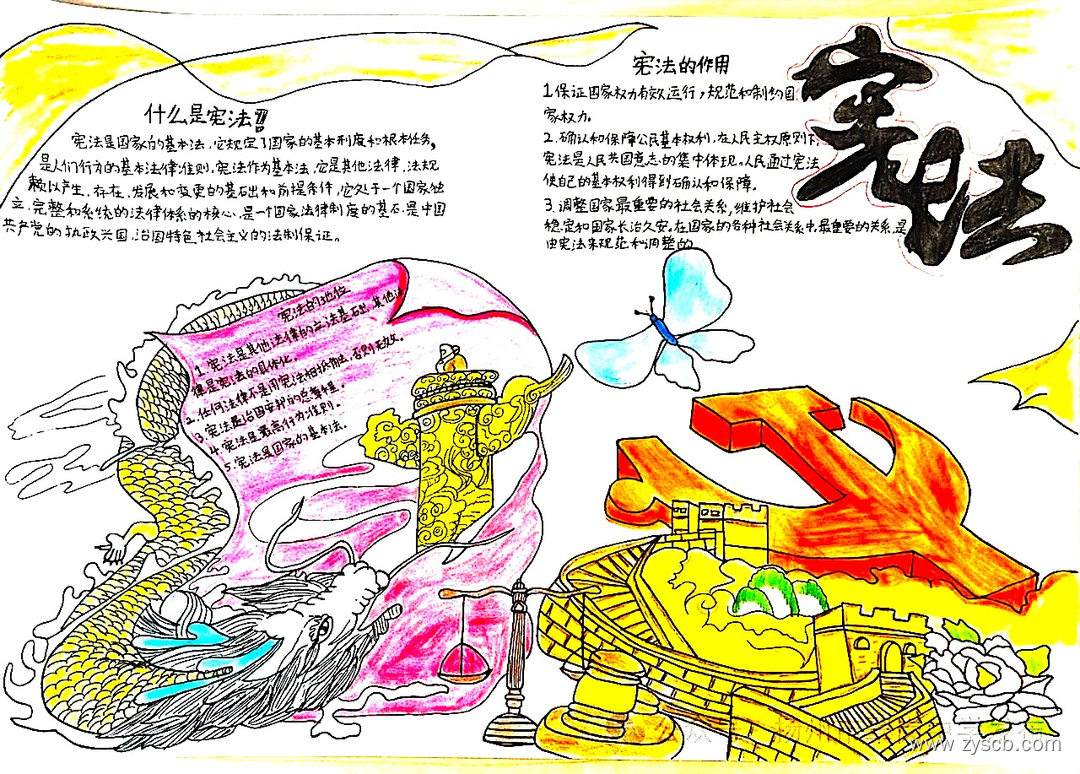 什么是宪法!!!
宪法是国家的基本法，它规定了国家的基本制度和根本任务。
是人们行为的基本法律准则，宪法作为基本法，它是其他法律，法规
赖以产生、存在、发展和变更的基础和前提条件，它处于一个国家独
立、完整和系统的法律体系的核心，是一个国家法律制度的基石，是中国
共产党的执政兴国，治国特色社会主义的法制保证。
宪法的作用
1.保证国家权力有效运行，规范和制约国
家权力。
2.确认和保障公民基本权利，在人民主权原则下，
宪法是人民共国意志的集中体现。人民通过宪法
使自己的基本权利得到确认和保障。
3.调整国家最重要的社会关系，维护社会
稳定和国家长治久安。在国家的各种社会关系中，最重要的关系，是
由宪法来规范和调整的
宪法
宪法的地位
1.宪法是其他法律的立法基础，其他法
律是宪法的具体化。
2.任何法律不是同宪法相抵触法，否则无效。
3.宪法是治国安邦的总章程。
4.宪法是最高行为准则。
5.宪法是国家的基本法。
www.zyscb.com